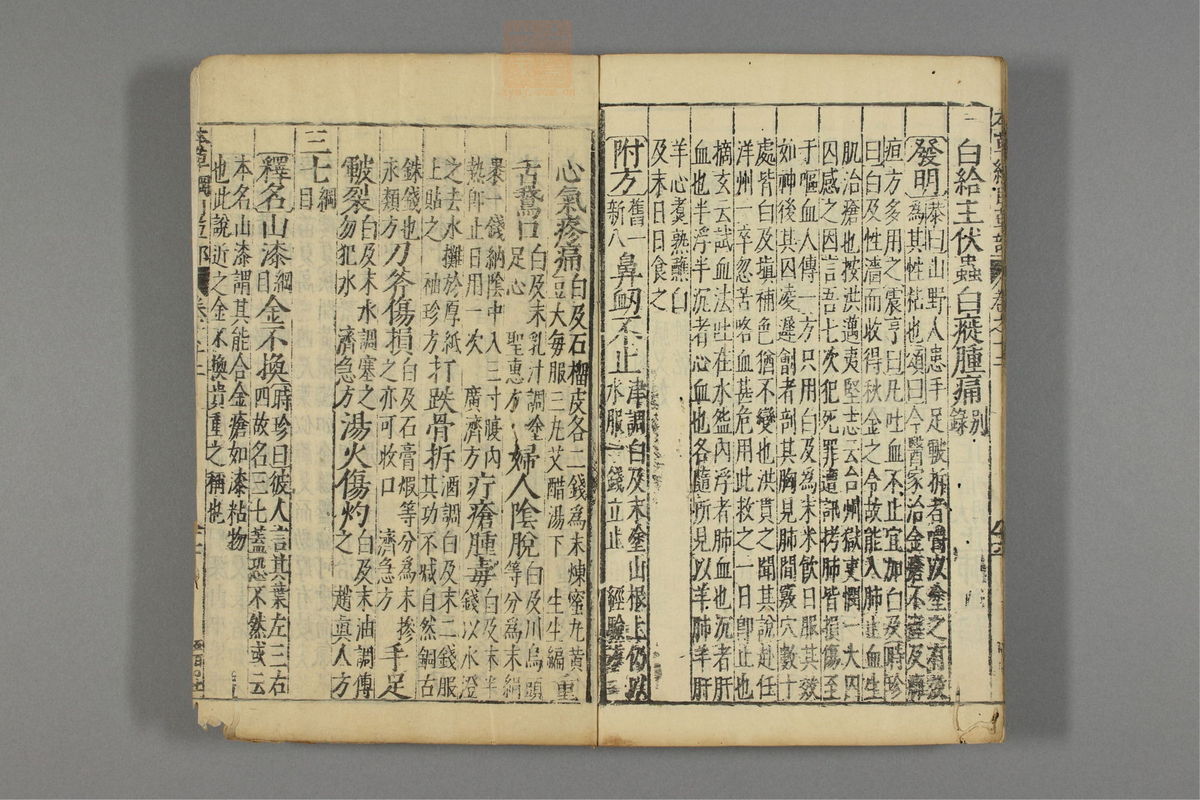 白給主伏蟲白癬腫痛別錄
發明恭曰山野人患手足皸拆者嚼以塗之有效
為其性粘也頌曰今醫家治金瘡不瘥及癰
疽方多用之震亨曰凡吐血不止宜加白及時珍
曰白及性濇而收得秋金之令故能入肺止血生
肌治瘡也按洪邁夷堅志云台州獄吏憫一大囚
囚感之因言吾七次犯死罪遭訊拷肺皆損傷至
于嘔血人傳一方只用白及為末米飲日服其效
如神後其囚凌遲劊者剖其胸見肺間竅穴數十
處皆白及填補色猶不變也洪貫之聞其說赴任
洋州一卒忽苦咯血甚危用此救之一日即止也
摘玄云試血法吐在水盌內浮者肺血也沉者肝
血也半浮半沉者心血也各隨所見以羊肺羊肝
羊心煮熟蘸白
及末日日食之
附方舊一新八鼻衂不止津調白及末塗山根上仍以水服一錢立止 經驗
心氣疼痛白及石榴皮各二錢為末煉蜜丸黃豆大每服三丸艾醋湯下 生生編重
舌鵞口白及末乳汁調塗足心 聖惠方婦人陰脫白及川烏頭等分為末絹
裹一錢納陰中入三寸腹內
熱即止日用一次 廣濟方疔瘡腫毒白及末半錢以水澄
之去水攤於厚紙上貼之 袖珍方打跌骨折酒調白及末二錢服其功不減自然銅古
銖錢也
永類方刀斧傷損白及石膏煆等分為末摻之亦可收口 濟急方手足
皸裂白及末水調塞之勿犯水 濟急方湯火傷灼白及末油調傅之 趙真人方
三七綱目
釋名山漆綱目金不換時珍曰彼人言其葉左三右四故名三七蓋恐不然或云
本名山漆謂其能合金瘡如漆粘物
也此說近之金不換貴重之稱也
本草綱目草部